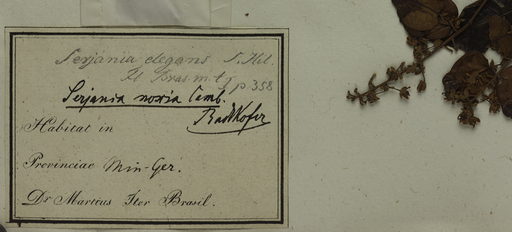 Serjania elegans S. Hil.
Fl. Bras. m. t. I p. 358
Serjania noxia Camb.
Radlkofer
Habitat in
Provinciae Min-Ger.
Dr Martius Iter Brasil.